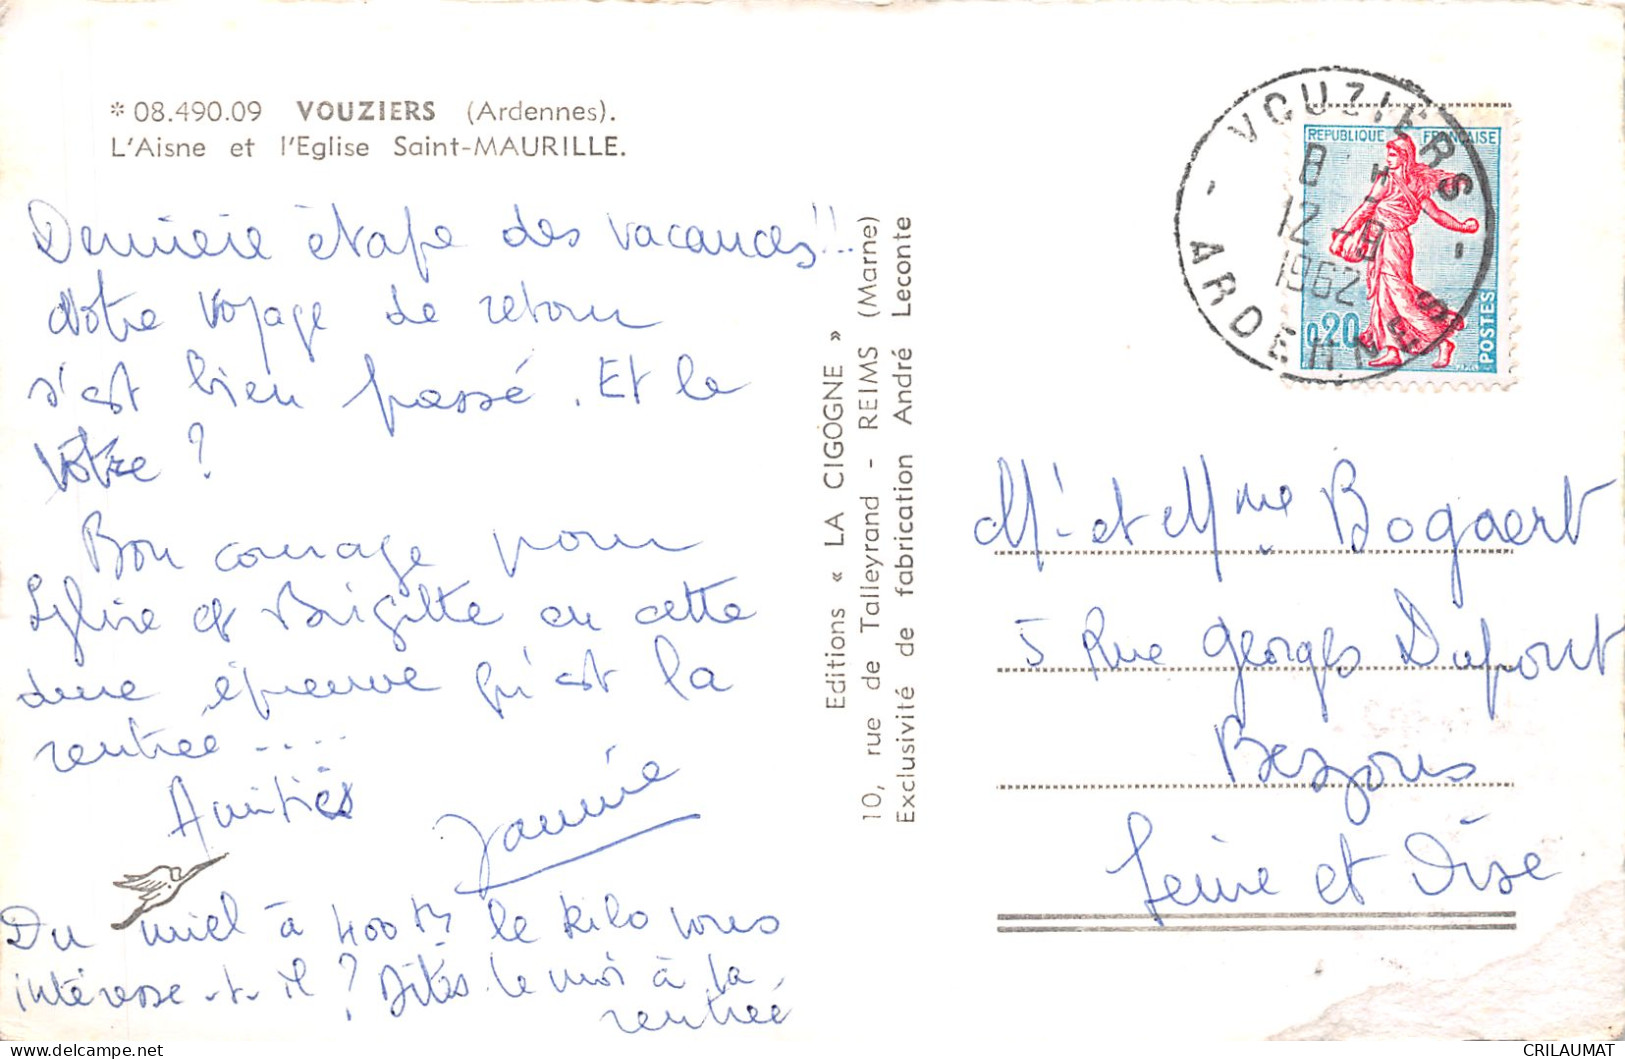 * 08.490.09 VOUZIERS (Ardennes).
L'Aisne et l'Eglise Saint-MAURILLE.
Dernière étape des vacances!!
Notre voyage de retour
s'est bien passé. Et le
Vôtre ?
Bon courage pour
et Brigitte en cette
dure épreuve qu'est la
rentrée ....
Amitiés
Jannie
Du miel à 400 le kilo vous
intéresse-t-il ? Dites le moi à la
rentrée
Editions « LA CIGOGNE »
10, rue de Talleyrand - REIMS (Marne)
Exclusivité de fabrication André Leconte
VOUZIERS
8 H
12 -9
1962
ARDENNES
REPUBLIQUE FRANÇAISE
0,20
POSTES
Mr et Mme Bogaert
5 Rue Georges Dupont
Bezons
Seine et Oise
CRILAUMAT